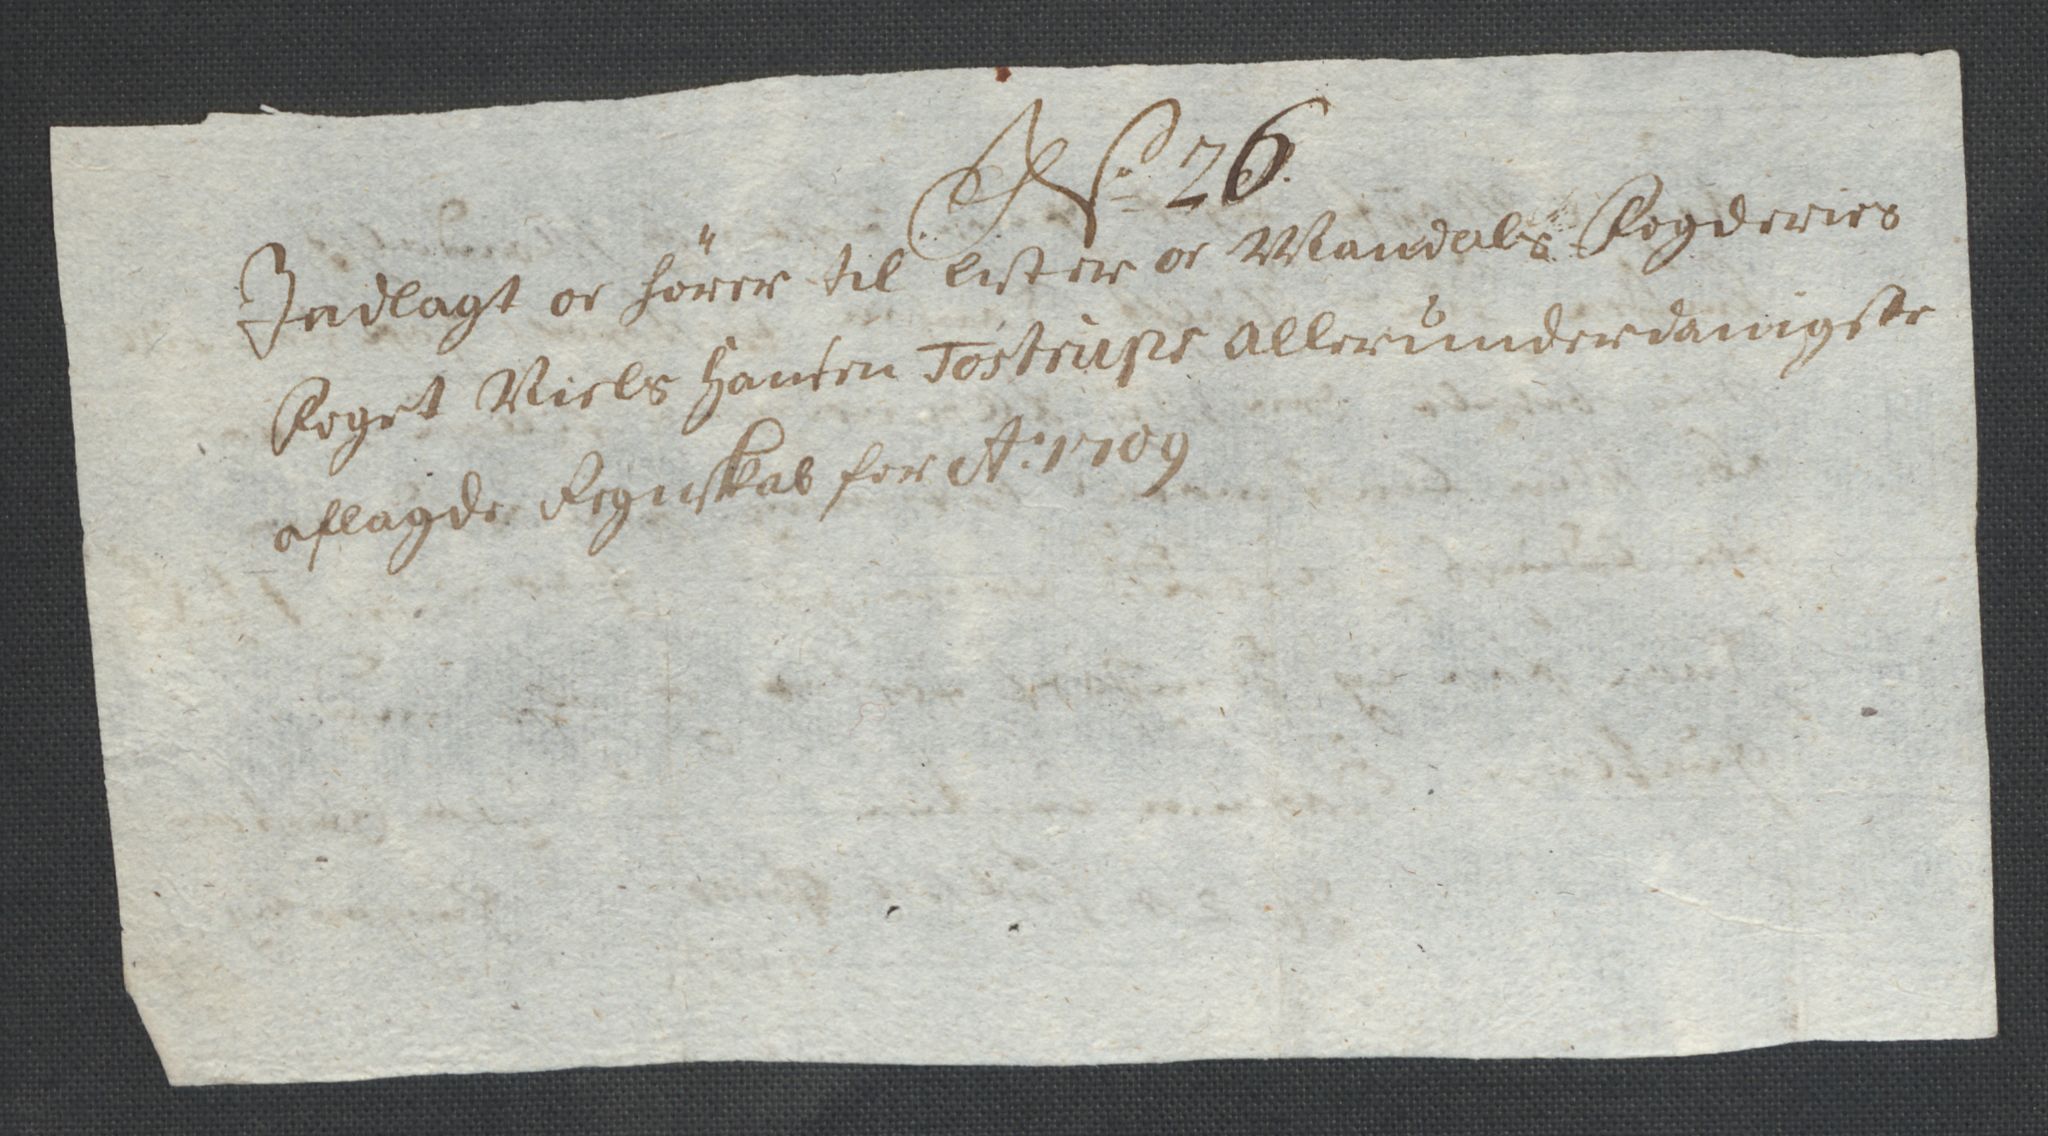 No 26.
Indlagt oc hörer til Lister oc Mandals Fogderies
Foget Niels Hansen Tostrups Allerunderdanigste
aflagde Regnskab for Ao 1709